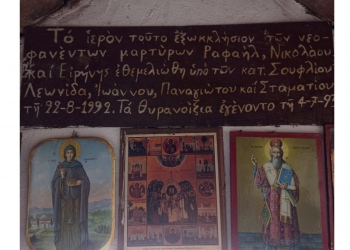 Τό ἱερόν τοῦτο ἐξωκκλήσιον τῶν νεο-
φανέντων μαρτύρων Ραφαήλ, Νικολάου
καί Εἰρήνης ἐθεμελιώθη ὑπό τῶν κατ. Σουφλίου
Λεωνίδα, Ἰωάννου, Παναγιώτου καί Σταματίου
τῇ 22-8-1992. Τά θυρανοίξια ἐγένοντο τῇ 4-7-93